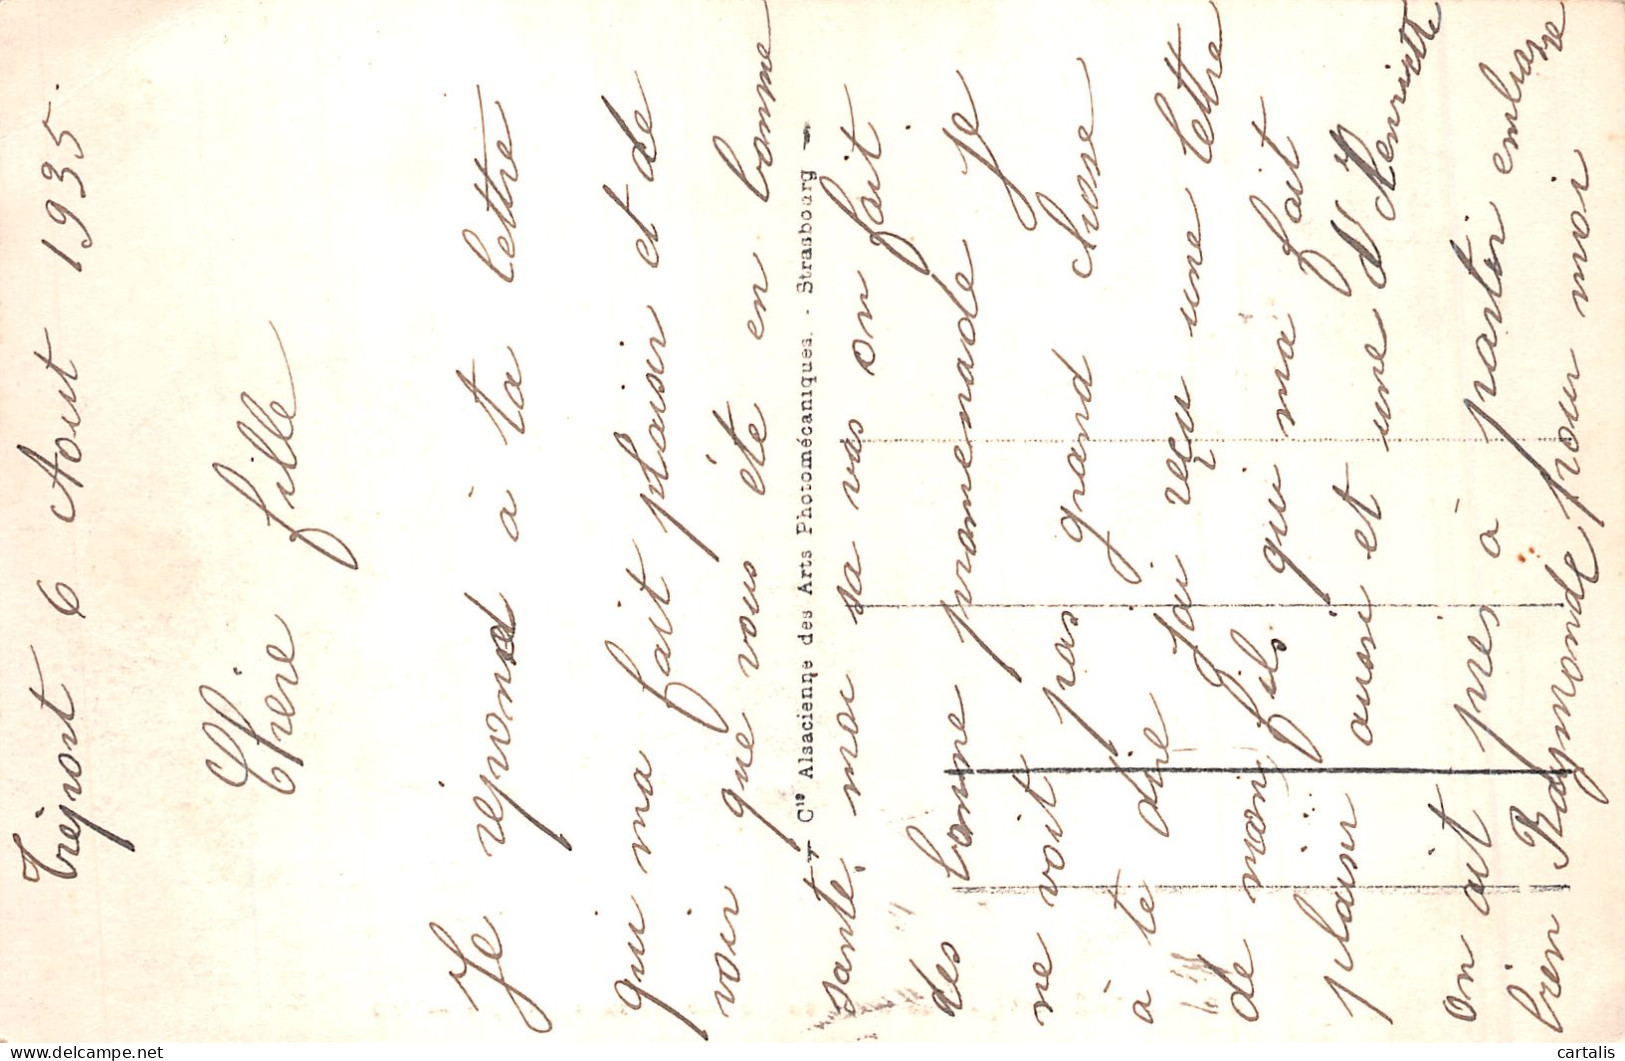 Tréport 6 Aout 1935.
Chère fille
Je répond à ta lettre
qui ma fait plaisir et de
voir que vous éte en bonne
Cie Alsacienne des Arts Photomécaniques. - Strasbourg
santé, moi sa vas on fait
des bonne promenade Je
ne voit pas grand chose
à te dire j'ai reçu une lettre
de mon fils qui ma fait
plaisir aussi et une d'Henriette
on ait pres à partir embrasse
bien Raymonde pour moi
cartalis